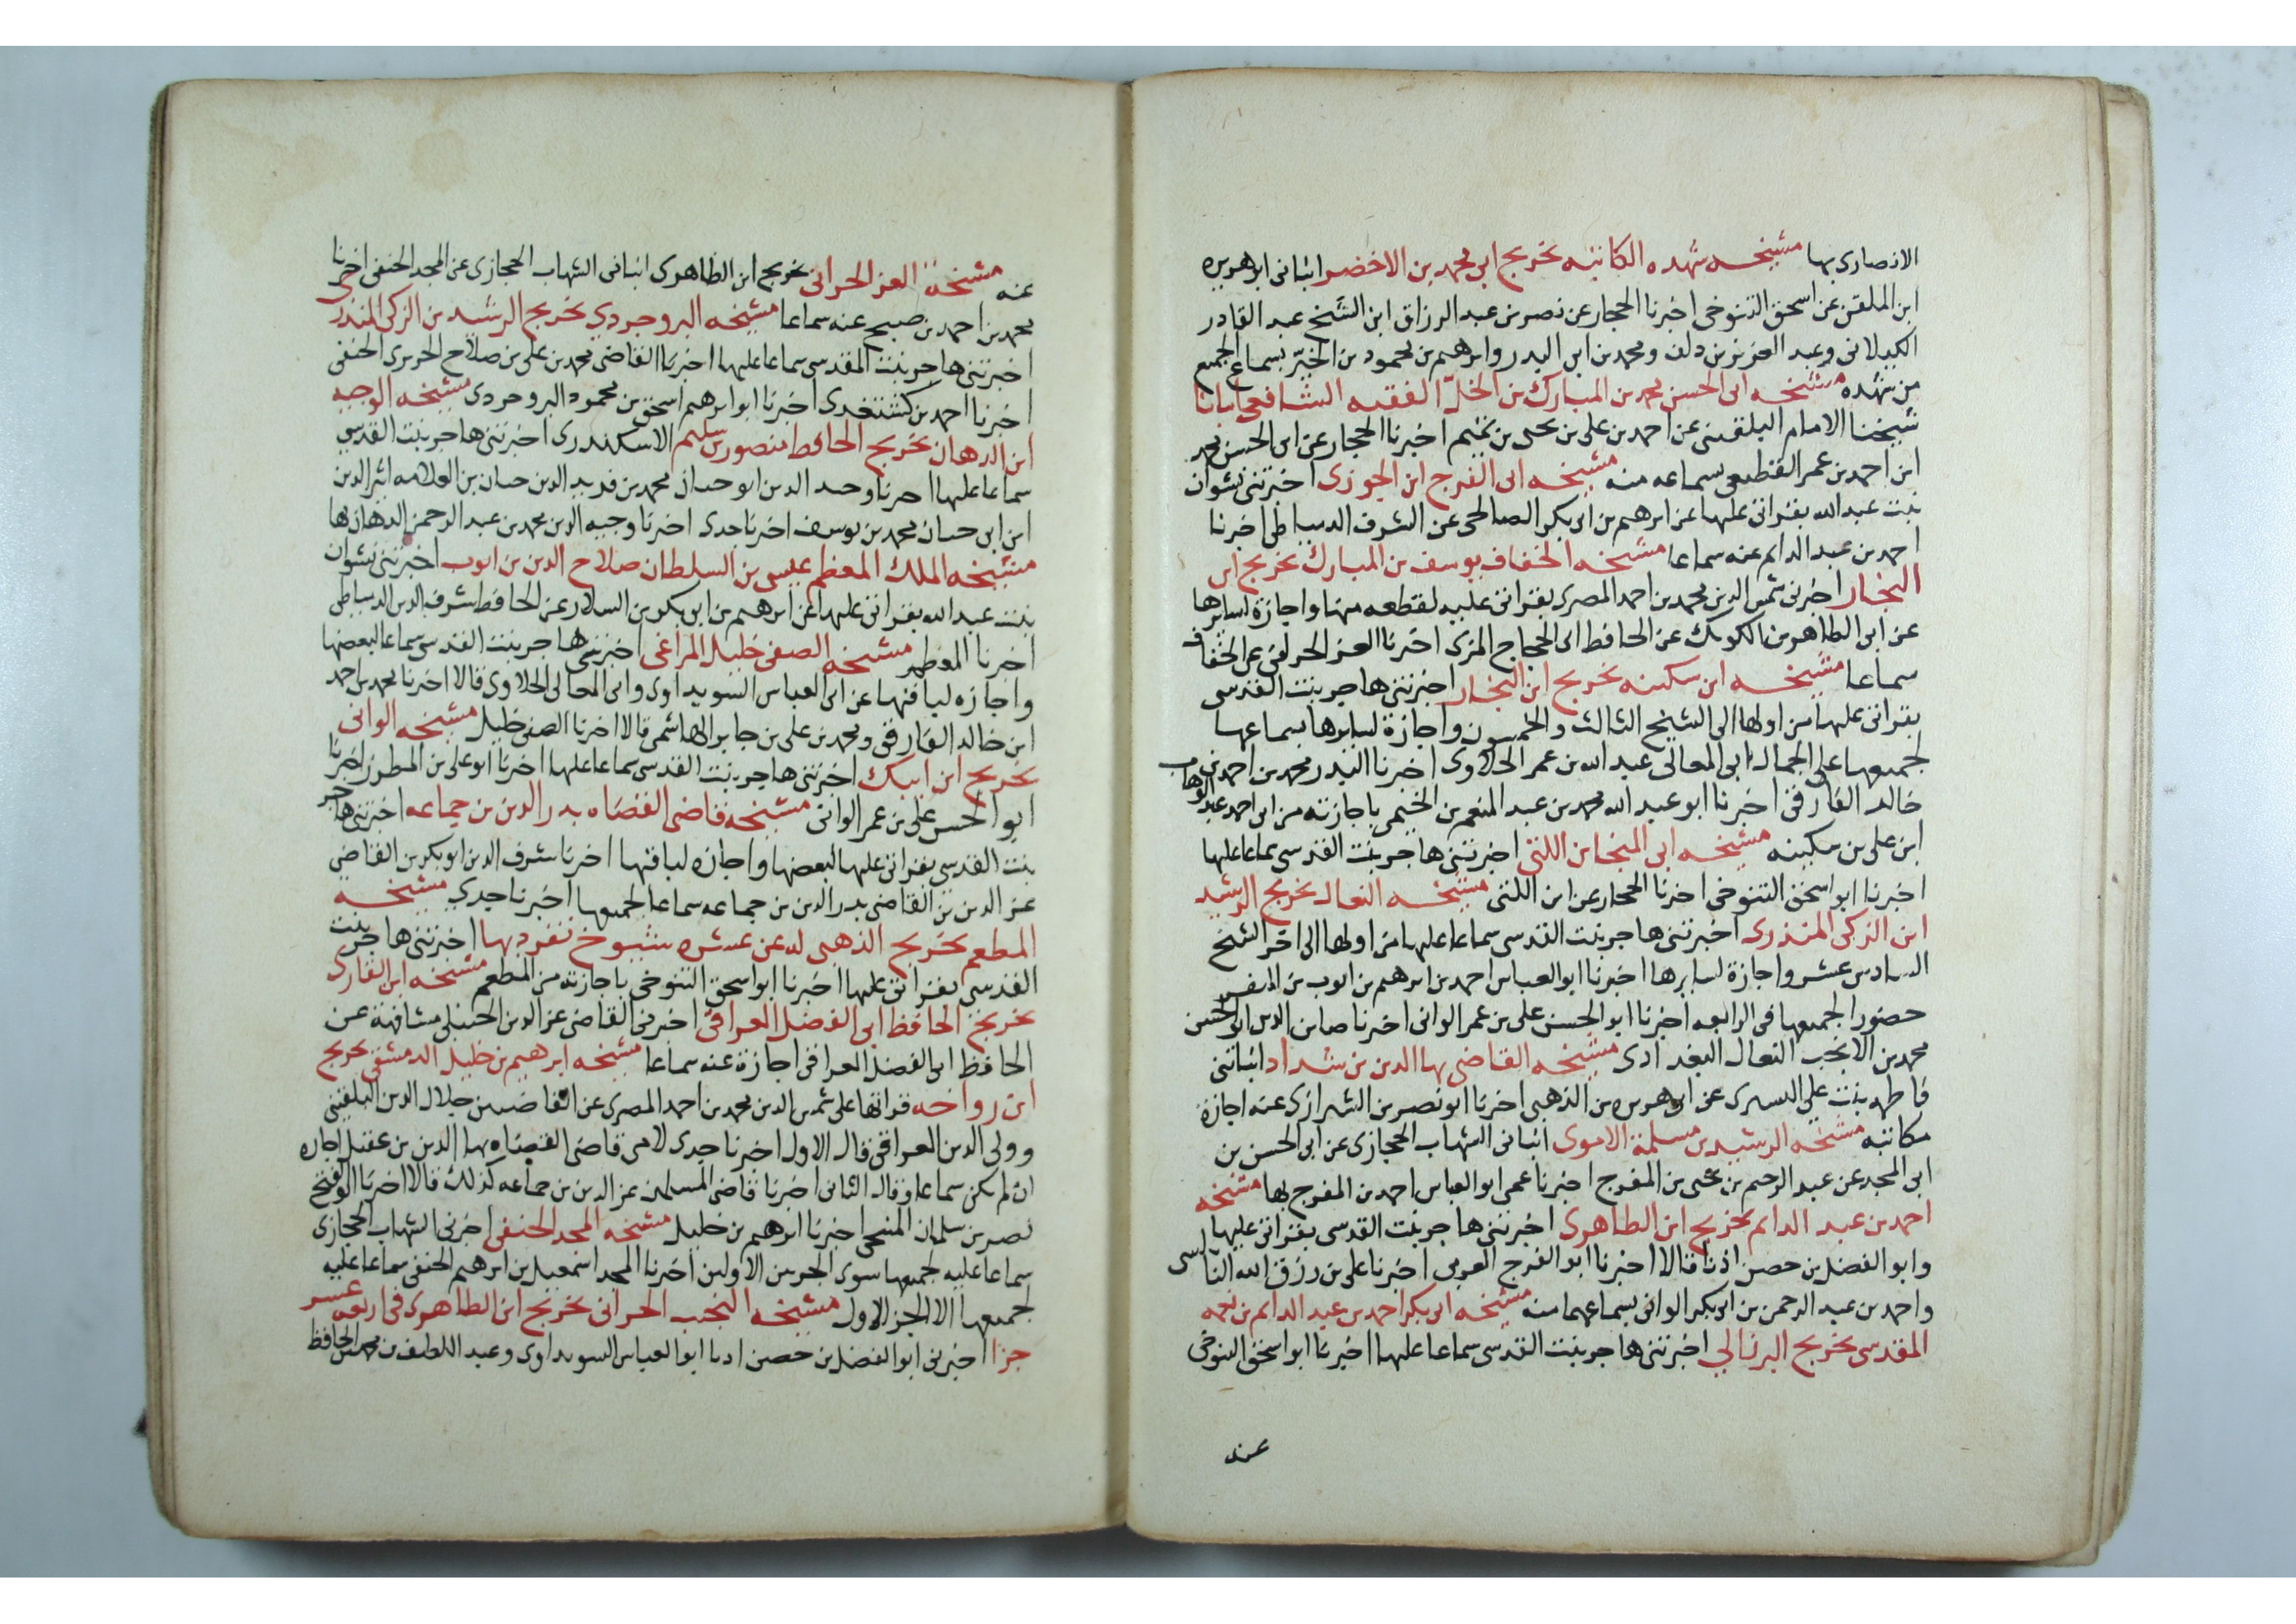 الانصارى بها مشيخه شهده الكاتبه تخريج ابى محمد بن الاخضر انبانى ابو هريره
ابن الملقن عن اسحق التنوخى اخبرنا الحجار عن نصر بن عبد الرزاق ابن الشيخ عبد القادر
الكيلانى وعبد العزيز بن دلف ومحمد بن ابى البدر وابرهيم بن محمود بن الخير بسماع الجميع
من شهده مشيخه ابى الحسن محمد بن المبارك بن الخل الفقيه الشافعى انبانا
شيخنا الامام البلقينى عن احمد بن على بن يحيى بن تميم اخبرنا الحجار عن ابى الحسن محمد
ابن احمد بن عمر القطيعى سماعه منه مشيخه ابى الفرج ابن الجوزى اخبرتنى نشوان
بنت عبد الله بقراتى عليها عن ابرهيم بن ابى بكر الصالحى عن الشرف الدمياطى اخبرنا
احمد بن عبد الدايم عنه سماعا مشيخه الخفاف يوسف بن المبارك تخريج ابن
النجار اخبرنى شمس الدين محمد بن احمد المصرى بقراتى عليه لقطعه منها واجازة لسايرها
عن ابى الطاهر بن الكويك عن الحافظ ابى الحجاج المزى اخبرنا العز الحرانى عن الخفاف
سماعا مشيخه ابن سكينه تخريج ابن النجار اخبرتنى هاجر بنت القدسى
بقراتى عليها من اولها الى الشيخ الثالث والخمسون واجازة لسايرها بسماعها
لجميعها على الجمال ابى المعالى عبد الله بن عمر الحلاوى اخبرنا البدر محمد بن احمد بن
خالد الفارقى اخبرنا ابو عبد الله محمد بن عبد المنعم بن الخيمى باجازته من ابى احمد عبد الوهاب
ابن على بن سكينه مشيخه ابى المنجا بن اللتى اخبرتنى هاجر بنت القدسى سماعا عليها
اخبرنا ابو اسحق التنوخى اخبرنا الحجار عن ابن اللتى مشيخه النعال تخريج الرشيد
ابن الزكى المنذرى اخبرتنى هاجر بنت القدسى سماعا عليها من اولها الى اخر الشيخ
السادس عشر واجازة لسايرها اخبرنا ابو العباس احمد بن ابرهيم بن ايوب بن
حضورا لجميعها فى الرابعه اخبرنا ابو الحسن على بن عمر الوانى اخبرنا صاين الدين ابو الحسن
محمد بن الانجب النعال البغدادى مشيخه القاضى بها الدين بن شداد انباتنى
فاطمه بنت على اليسرى عن ابى هريره بن الذهبى اخبرنا ابو نصر بن الشيرازى عنه اجازة
مكاتبه مشيخه الرشيد بن مسلمة الاموى انبانى الشهاب الحجازى عن ابى الحسن بن
ابى المجد عن عبد الرحيم بن يحيى بن المفرج اخبرنا عمى ابو العباس احمد بن المفرج بها مشيخه
احمد بن عبد الدايم تخريج ابن الظاهرى اخبرتنى هاجر بنت القدسى بقراتى عليها
وابو الفضل بن حصن اذنا قالا اخبرنا ابو الفرج الغزى اخبرنا على بن رزق الله النابلسى
واحمد بن عبد الرحمن بن ابى بكر الوانى بسماعهما منه مشيخه ابى بكر احمد بن عبد الدايم بن نعمه
المقدسى تخريج البرزالى اخبرتنى هاجر بنت القدسى سماعا عليها اخبرنا ابو اسحق التنوخى
عنه
عنه مشيخة العز الحرانى تخريج ابن الظاهرى انبانى الشهاب الحجازى عن المجد الحنفى اخبرنا
محمد بن احمد بن صبيح عنه سماعا مشيخه البروجردى تخريج الرشيد بن الزكى المنذرى
اخبرتنى هاجر بنت المقدسى سماعا عليها اخبرنا القاضى محمد بن على بن صلاح الحريرى الحنفى
اخبرنا احمد بن كشتغدى اخبرنا ابو ابرهيم اسحق بن محمود البروجردى مشيخه الوجيه
ابن الدهان تخريج الحافظ منصور بن سليم الاسكندرى اخبرتنى هاجر بنت القدسى
سماعا عليها اخبرنا وحيد الدين ابو حيان محمد بن فريد الدين حيان بن العلامه اثير الدين
ابن ابى حيان محمد بن يوسف اخبرنا جدى اخبرنا وجيه الدين محمد بن عبد الرحمن الدهان بها
مشيخه الملك المعظم عيسى بن السلطان صلاح الدين بن ايوب اخبرتنى نشوان
بنت عبد الله بقراتى عليها عن ابرهيم بن ابى بكر بن السلار عن الحافظ شرف الدين الدمياطى
اخبرنا المعظم مشيخه الصفى خليل المراغى اخبرتنى هاجر بنت القدسى سماعا لبعضها
واجازه لباقيها عن ابى العباس السويداوى وابى المعالى الحلاوى قالا اخبرنا محمد بن احمد
ابن خالد الفارقى ومحمد بن على بن جابر الهاشمى قالا اخبرنا الصفى خليل مشيخه الوانى
تخريج ابن ايبك اخبرتنى هاجر بنت القدسى سماعا عليها اخبرنا ابو على بن المطرز اخبرنا
ابو الحسن على بن عمر الوانى مشيخة قاضى القضاه بدر الدين بن جماعه اخبرتنى هاجر
بنت القدسى بقراتى عليها لبعضها واجازه لباقيها اخبرنا شرف الدين ابو بكر بن القاضى
عز الدين بن القاضى بدر الدين بن جماعه سماعا لجميعها اخبرنا جدى مشيخه
المطعم تخريج الذهبى له عن عشره شيوخ تفرد بها اخبرتنى هاجر بنت
القدسى بقراتى عليها اخبرنا ابو اسحق التنوخى باجازته من المطعم مشيخه ابن القارى
تخريج الحافظ ابى الفضل العراقى اخبرنى القاضى عز الدين الحنبلى مشافهة عن
الحافظ ابى الفضل العراقى اجازة عنه سماعا مشيخه ابرهيم بن خليل الدمشقى تخريج
ابن رواحه قراتها على شمس الدين محمد بن احمد المصرى عن القاضيين جلال الدين البلقينى
وولى الدين العراقى قال الاول اخبرنا جدى لامى قاضى القضاه بها الدين بن عقيل اجازه
ان لم يكن سماعا وقال الثانى اخبرنا قاضى المسلمين عز الدين بن جماعه كذلك قالا اخبرنا ابو الفتح
نصر بن سلمان المنبجى اخبرنا ابرهيم بن خليل مشيخه المجد الحنفى اخبرنى الشهاب الحجازى
سماعا عليه لجميعها سوى الجزين الاولين اخبرنا المجد اسمعيل بن ابرهيم الحنفى سماعا عليه
لجميعها الا الجز الاول مشيخه النجيب الحرانى تخريج ابن الظاهرى فى اربعه عشر
جزا اخبرنى ابو الفضل بن حصن اذنا ابو العباس السويداوى وعبد اللطيف بن محمد الحافظ